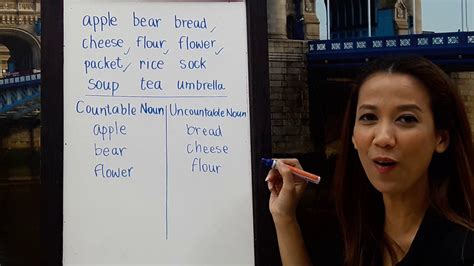 apple bear bread
cheese flour flower
packet rice sock
soup tea umbrella
Countable Noun Uncountable Noun
apple bread
bear cheese
flower flour